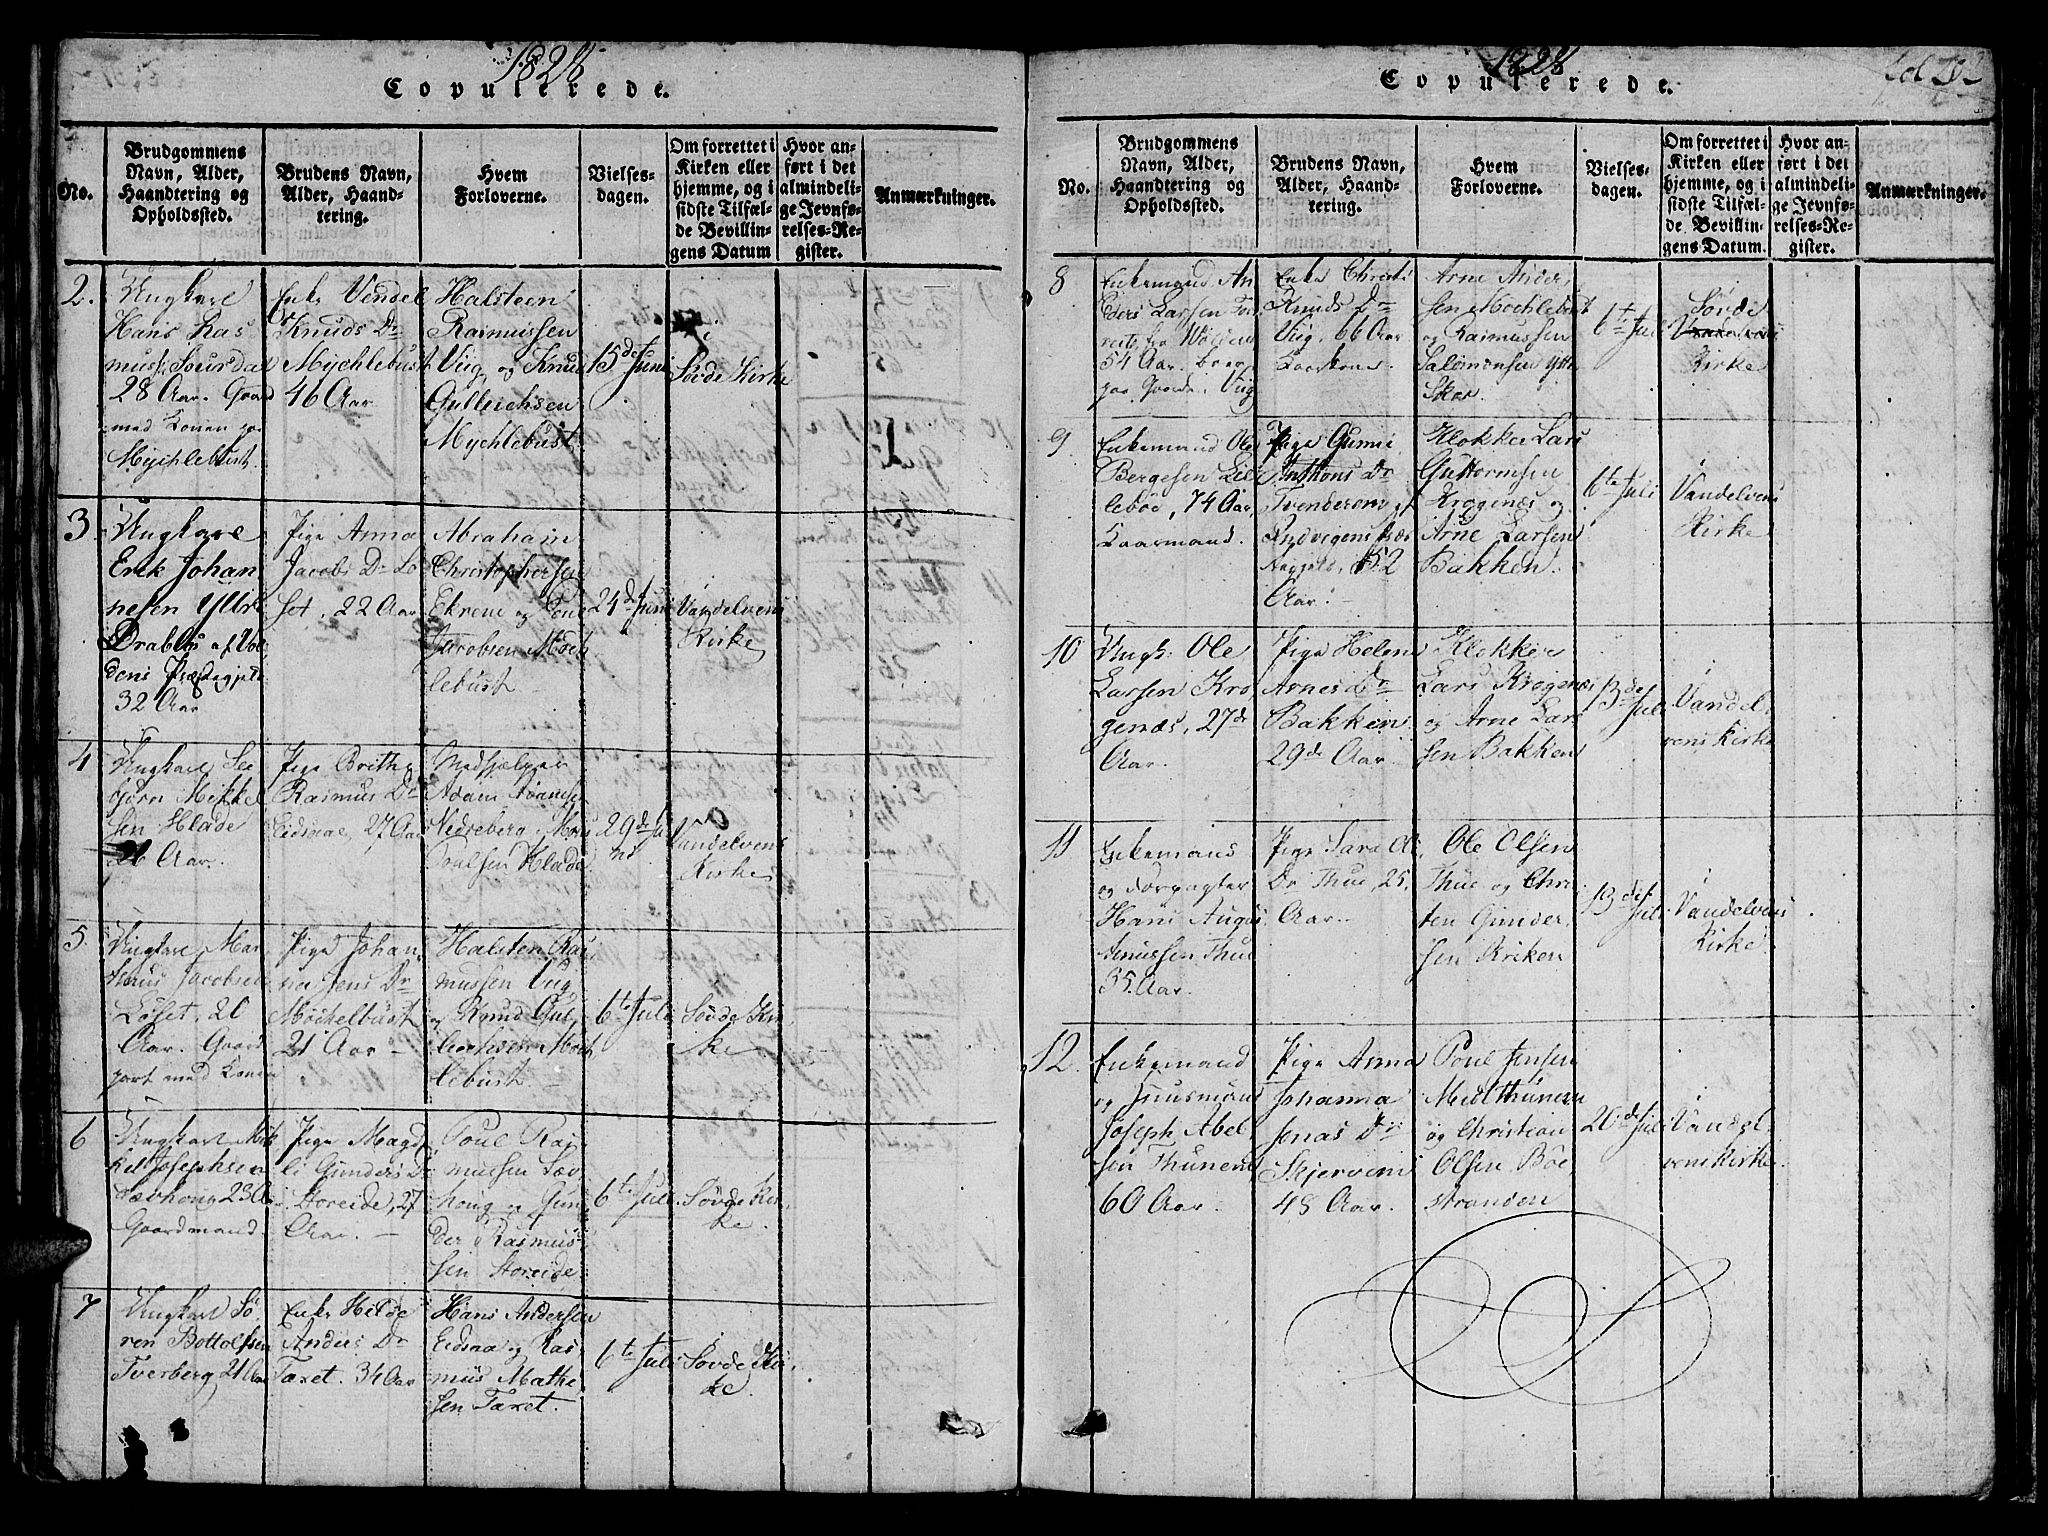 1828
Copulerede.
No.
Brudgommens
Navn, Alder,
Haandtering og
Opholdssted.
Brudens Navn,
Alder, Haand-
tering.
Hvem
Forloverne.
Vielses-
dagen.
Om forrettet i
Kirken eller
hjemme, og i
sidste Tilfæl-
de Bevillin-
gens Datum
Hvor an-
ført i det
almindeli-
ge Jevnfø-
relses-Re-
gister.
Anmærkninger.
2.
Ungkarl
Hans Ras
muss. Sourdal
28 Aar. Gaard
med Konen paa
Mychlebust.
Enke Vendel
Knuds Dr
Mychlebust
46 Aar
Halsteen
Rasmussen
Viig, og Knud
Gulleichsen
Mychlebust
15de Juni
i
Sövde Kirke
3.
Ungkarl
Erik Johan
nesen Ytre
Drabløs af Vol
dens Præstegjeld
32 Aar
Pige Anna
Jacobs Dr Lö
set, 22 Aar
Abraham
Christophersen
Ekrene og
Jacobsen Moch
lebust
24de Juni
i
Vandelvens
Kirke
4
Ungkarl See
björn Mikkel
sen Hlade
26 Aar.
Pige Brithe
Rasmus Dr
Eidsnae, 27 Aar
Medhjælper
Adam
Nedreberg,
Poulsen Hlade
29de Ju
ni
Vandelvens
Kirke
5.
Ungkarl Mar
thinus Jacobsen
Löset, 20
Aar. Gaard
part med Konen
Pige Johan
na Jens Dr
Mochelbust
21 Aar
Halsten Ras
mussen Viig,
og Knud Gul
leichsen Moch
lebust.
6te Juli
Sövde Kir
ke
6
Ungkarl Mik
kel Josephsen
Sævhoug 23 Aar
Gaardmand.
Pige Magd
li Gunders Dr
Storeide, 27
Aar.
Poul Ras
mussen Sæv
houg og Gun
der Rasmus
sen Storeide
6te Juli
Sövde Kir
ke.
7
Ungkarl Sö
ren Bottolfsen
Tverberg 21 Aar
Enke Hilde
Anders Dr
Taxet. 34 Aar
Hans Andersen
Eidsaa og Ras
mus Mathe
sen Taxet.
6te Juli
i
Sövde Kir
ke
1828
Copulerede.
No.
Brudgommens
Navn, Alder,
Haandtering og
Opholdssted.
Brudens Navn,
Alder, Haand-
tering.
Hvem
Forloverne.
Vielses-
dagen.
Om forrettet i
Kirken eller
hjemme, og i
sidste Tilfæl-
de Bevillin-
gens Datum.
Hvor an-
ført i det
almindeli-
ge Jevnfø-
relses-Re-
gister.
Anmærkninger.
8
Enkemand An
ders Larsen
fra Volden
54 Aar.
paa Gaarde. Viig
Enke Christi
Knuds Dr
Viig, 66 Aar
Kaarkone.
Arne Ander
sen Mochlebust
og Rasmus
Salomonsen Ytre
Skor.
6te Juli
i
Sövde
Kirke
9
Enkemand Ole
Bergesen Lil
leböe, 74 Aar,
Kaarmand.
Pige Gunni
Anthons Dr
Tvenderem af
Rødvigens Præs
tegjeld, 52
Aar.
Klokker Lars
Guttormsen
Krogenæs og
Arne Larsen
Bakken.
6te Juli
i
Vandelvens
Kirke
10
Ungk: Ole
Larsen Kro
genæs, 27de
Aar.
Pige Helene
Arnes Dr
Bakken
29de Aar.
Klokker
Lars Krogenæs
og Arne Lar
sen Bakken
13de
Juli
i
Vandel
vens Kirke
11
Enkemand
og Forpagter
Hans Augus
tinussen Thue
35. Aar.
Pige Sara Ols
Dr Thue, 25.
Aar.
Ole Olsen
Thue og Chri
sten Gunder
sen Kriken
13de
Juli
i
Vandelvens
Kirke
12.
Enkemand
og Huusmand
Joseph Abel
sen Thunem
60 Aar.
Pige Anna
Johanna
Jonas Dr
Skjerven
48 Aar.
Poul Jensen
Melthunem
og Christian
Olsen Böe
stranden
20de Juli
i
Vandel
vens Kirke